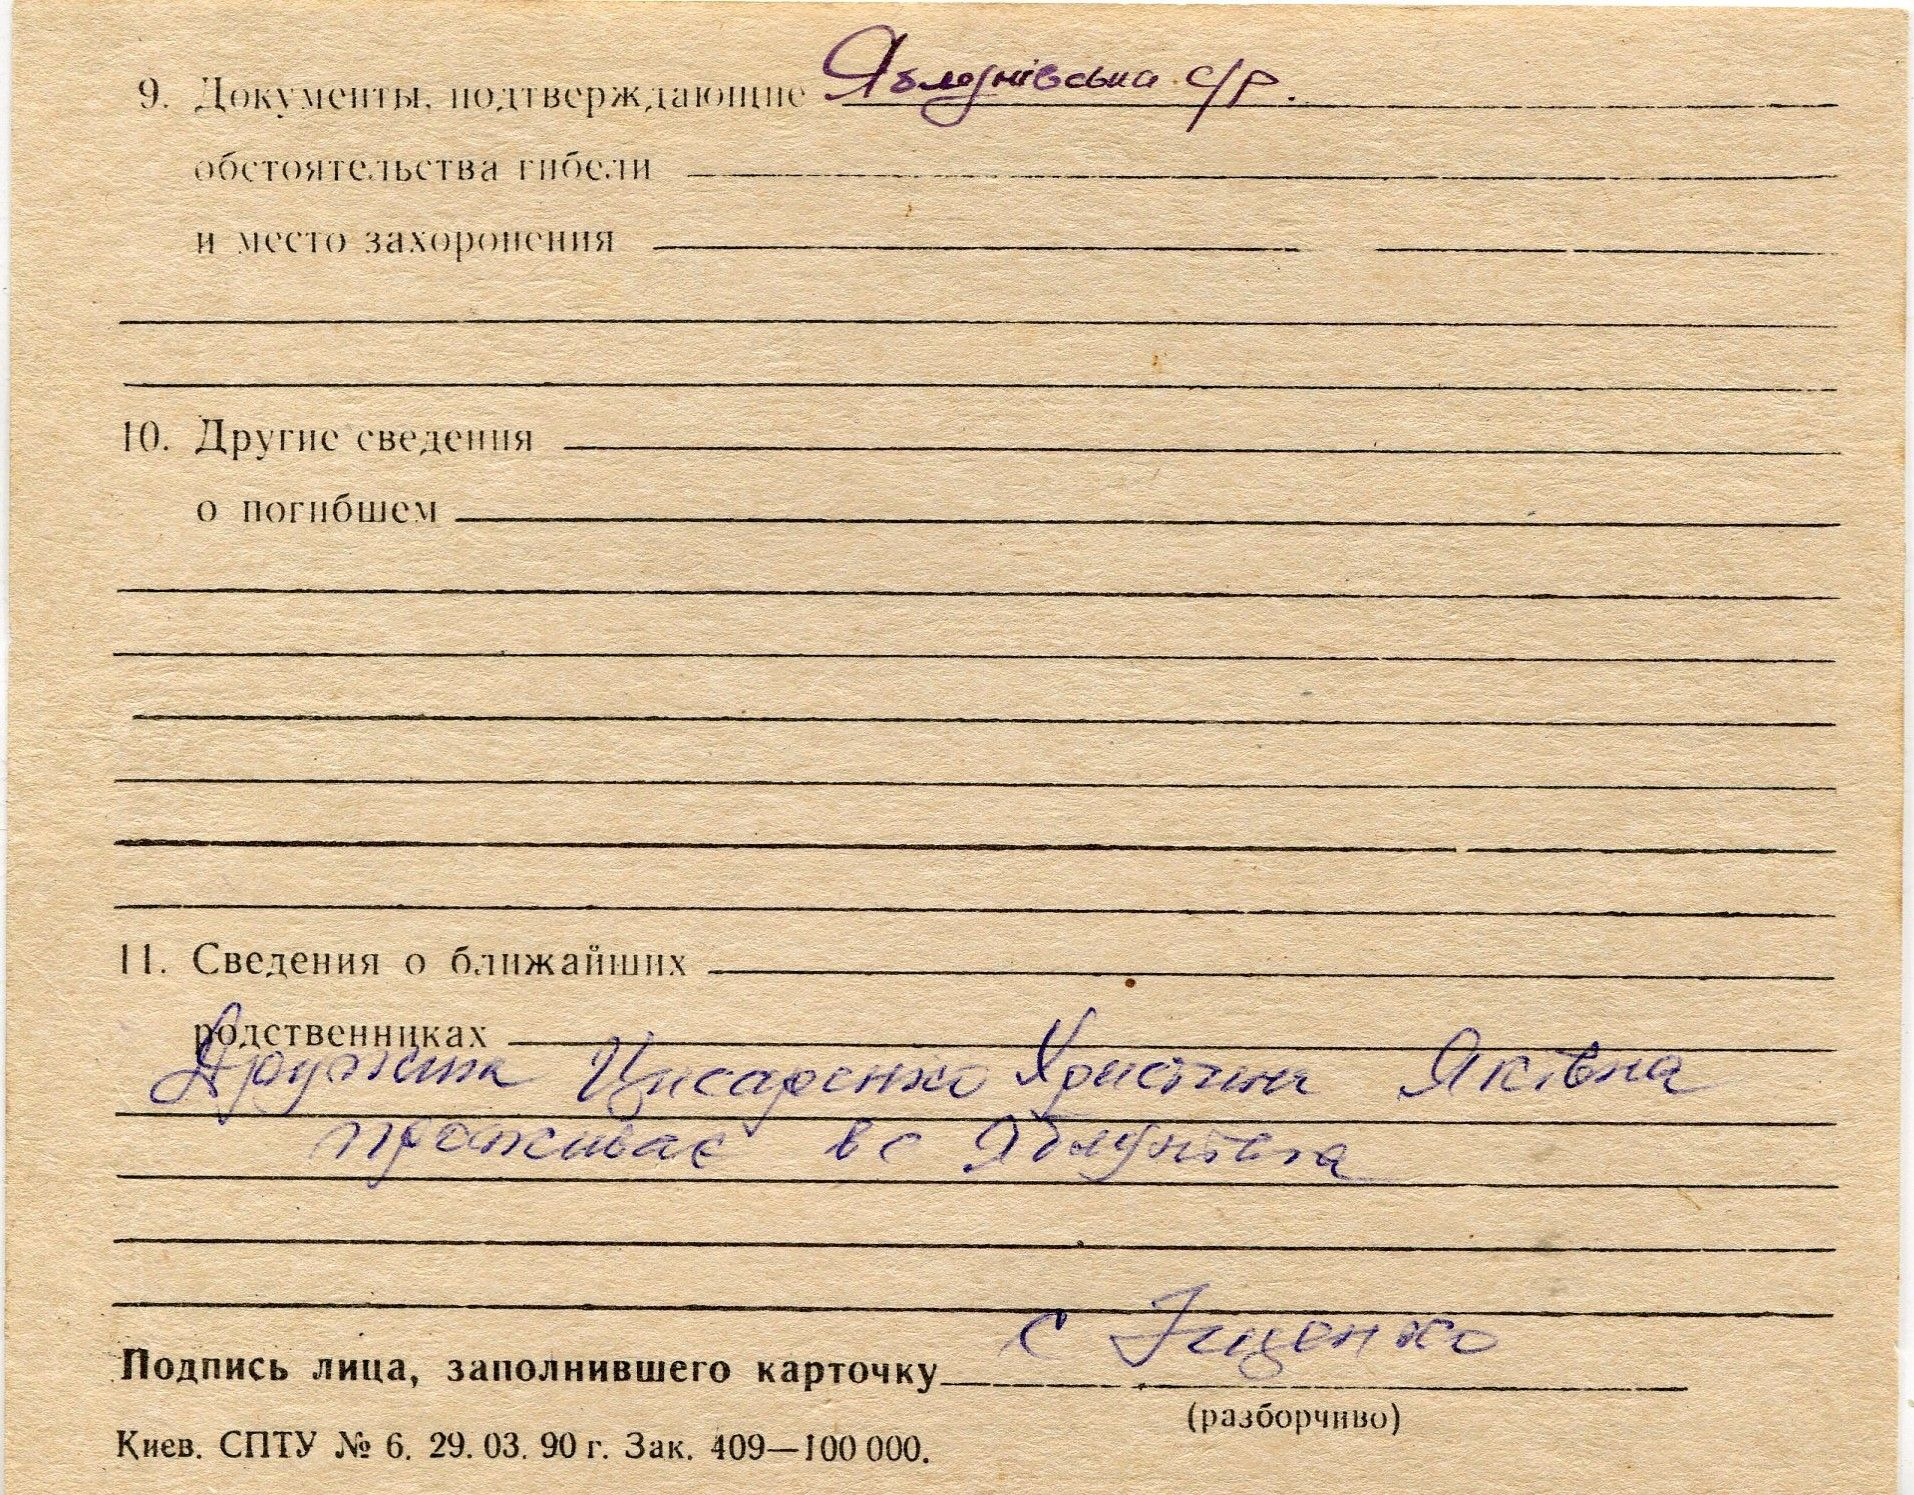 9. Документы, подтверждающие Яблунівська с/р.
обстоятельства гибели
и место захоронения
10. Другие сведения
о погибшем
11. Сведения о ближайших
родственниках
Дружина Цисаренко Христина Яківна
проживає в с Яблунівка
Подпись лица, заполнившего карточку с Іщенко
(разборчиво)
Киев. СПТУ № 6. 29. 03. 90 г. Зак. 409—100 000.